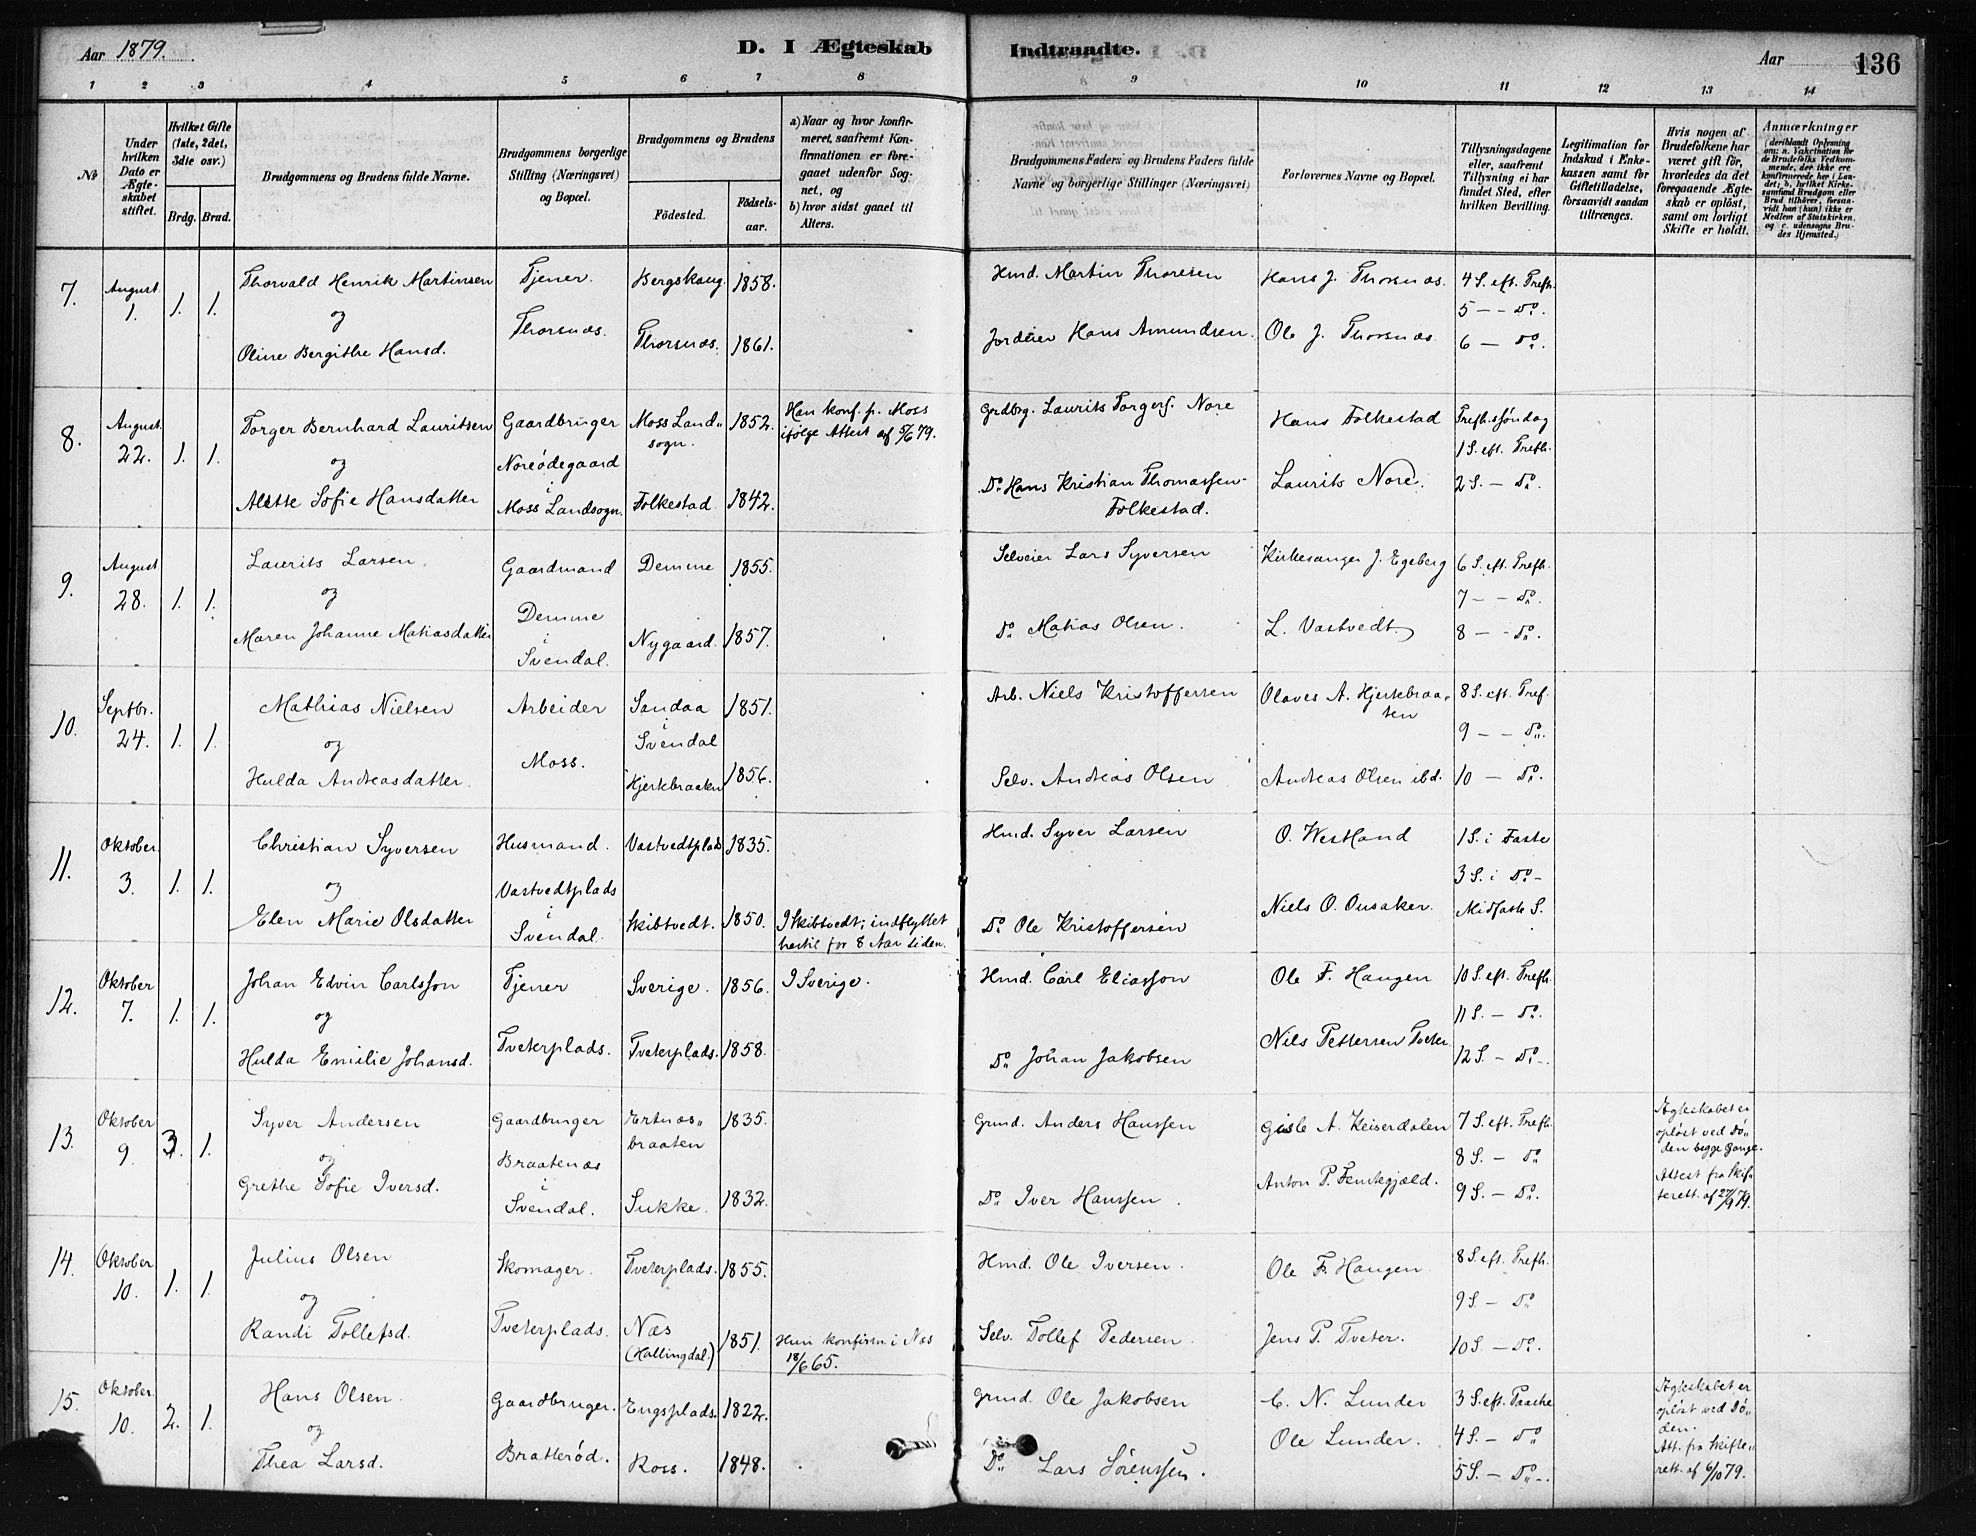 Aar 1879.
D. I Ægteskab Indtraadte.
Aar
136
1 2 3 4 5 6 7 8 9 10 11 12 13 14
No
Under hvilken Dato er Ægteskabet stiftet.
Hvilket Gifte (1ste, 2det, 3die osv.)
Brdg. Brud.
Brudgommens og Brudens fulde Navne.
Brudgommens borgerlige Stilling (Næringsvei) og Bopæl.
Brudgommens og Brudens
Födested.
Födselsaar.
a) Naar og hvor konfirmeret, saafremt Konfirmationen er foregaaet udenfor Sognet, og
b) hvor sidst gaaet til Alters.
Brudgommens Faders og Brudens Faders fulde Navne og borgerlige Stillinger (Næringsvei)
Forlovernes Navne og Bopæl.
Tillysningsdagene eller, saafremt Tillysning ei har fundet Sted, efter hvilken Bevilling.
Legitimation for Indskud i Enkekassen samt for Giftetilladelse, forsaavidt saadan tiltrænges.
Hvis nogen af Brudefolkene har været gift för, hvorledes da det foregaaende Ægteskab er oplöst, samt om lovligt Skifte er holdt.
Anmærkninger
(deriblandt Oplysning om: a. Vakcination for de Brudefolks Vedkommende, der ikke ere konfirmerede her i Landet; b. hvilket Kirkesamfund Brudgom eller Brud tilhörer, forsaavidt han (hun) ikke er Medlem af Statskirken, og c. udensogns Brudes Hjemsted.)
7. August 1. 1. 1.
Thorvald Henrik Martinsen
og
Oline Bergithe Hansd.
Tjener.
Thorsnæs.
Bergskaug 1858.
Thorsnæs. 1861.
Hmd. Martin Thoresen
Jordeier Hans Amundsen.
Hans J. Thorsnæs.
Ole J. Thorsnæs.
4 S. eft. Trefh.
5 – – Do.
6 – Do.
8. August 22. 1. 1.
Torger Bernhard Lauritsen
og
Alette Sofie Hansdatter
Gaardbruger
Noreödegaard
i
Moss Landsogn.
Moss Landsogn. 1852.
Folkestad 1842.
Han konf. p. Moss
ifölge Attest af 5/6 79.
Grdbrg. Laurits Torgers. Nore
Do. Hans Kristian Thomassen
Folkestad.
Hans Folkestad
Laurits Nore.
Trefh. söndag
1 S. eft. Trefh.
2 S. – Do.
9. August 28. 1. 1.
Laurits Larsen
og
Maren Johanne Matiasdatter
Gaardmand
Demme
i
Svendal.
Demme 1855.
Nygaard. 1857.
Selveier Lars Syversen
Do. Matias Olsen.
Kirkesanger J. Egeberg
L. Vastvedt
6 S. eft. Trefh.
7 – – Do.
8 – – Do.
10. Septbr. 24. 1. 1.
Mathias Nielsen
og
Hulda Andreasdatter.
Arbeider
Moss.
Sandaa
i
Svendal 1851.
Hjertebraaten 1856.
Arb. Niels Kristoffersen
Selv. Andreas Olsen
Olaves A. Hjertebraaten
Andreas Olsen ibd.
8 S. eft. Tref.
9 – – Do.
10 – Do.
11. Oktober 3. 1. 1.
Christian Syversen
og
Elen Marie Olsdatter
Husmand.
Vastvedtplads
i
Svendal.
Vastvedtplads 1835.
Skibtvedt. 1850.
I Skibtvedt; indflyttet
hertil for 8 Aar siden.
Hmd. Syver Larsen
Do. Ole Kristoffersen
O. Westland
Niels O. Ousaker.
1 S. i Faste
3 S. i Do –
Midfaste S.
12. Oktober 7. 1. 1.
Johan Edvin Carlsson
og
Hulda Emilie Johansd.
Tjener
Tveterplads.
Sverige. 1856.
Tveterplads. 1858.
I Sverige.
Hmd. Carl Eliasson
Do. Johan Jakobsen
Ole F. Haugen
Nils Pettersen Tveter
10 S. eft. Trefh.
11 S. – Do.
12 S. – Do –.
13. Oktober 9. 3. 1.
Syver Andersen
og
Grethe Sofie Iversd.
Gaardbruger
Braatenæs
i
Svendal.
Ertnæsbraaten 1835.
Sukke. 1832.
Grmd. Anders Hanssen
Do. Iver Hanssen.
Gisle A. Keiserdalen
Anton P. Femtegjæld.
7 S. eft. Trefh.
8 S. – Do
9 S. – Do.
Ægteskabet er
oplöst ved Döden
begge Gange.
Attest fra Skifterett.
af 27/9 79.
14. Oktober 10. 1. 1.
Julius Olsen
og
Randi Tollefsd.
Skomager.
Tveterplads.
Tveterplads. 1855.
Næs
(Hallingdal) 1851.
Hun konfirm. i Næs
18/6 65.
Hmd. Ole Iversen.
Selv. Tollef Pedersen.
Ole F. Haugen.
Jens P. Tveter.
8 S. eft. Trefh.
9 S. – Do
10 S. – Do.
15. Oktober. 10. 2. 1.
Hans Olsen.
og
Thea Larsd.
Gaardbruger.
Bratteröd.
Engsplads. 1822.
Ross. 1848.
Grmd Ole Jakobsen
Do Lars Sörenssen.
C. N. Lunder
Ole Lunder.
3 S. eft. Paaske
4 S. – Do
5 S. – Do –.
Ægteskabet er
oplöst ved Döden.
Att. fra Skifterett.
af 6/10 79.